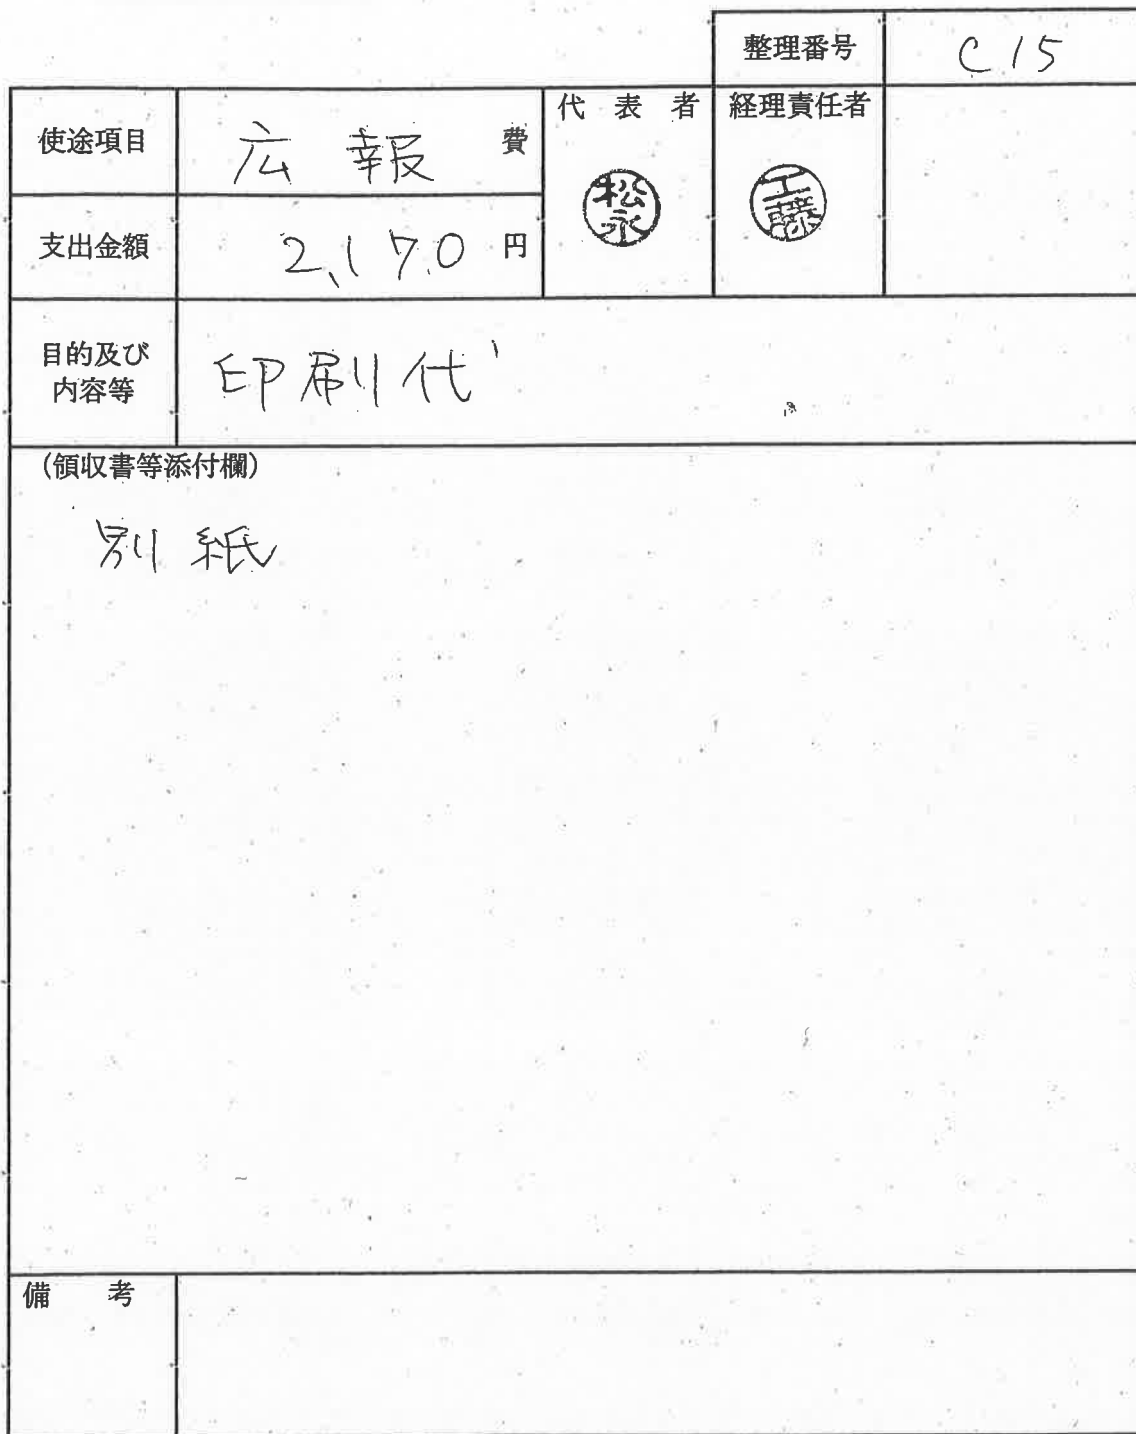 整理番号 C15
使途項目 広報 費
代表者 経理責任者
松永 工藤
支出金額 2,170 円
目的及び
内容等
印刷代
(領収書等添付欄)
別紙
備考